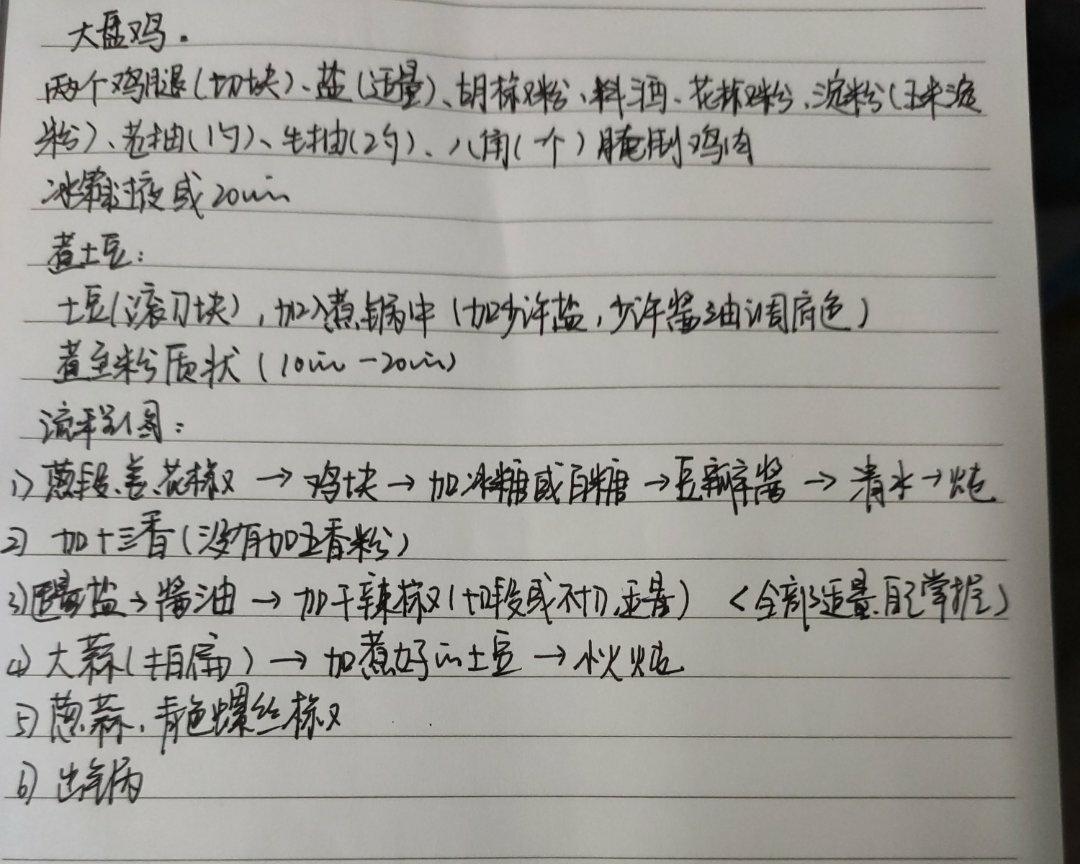 大盘鸡.
两个鸡腿(切块)、盐(适量)、胡椒粉、料酒、花椒粉、淀粉(玉米淀
粉)、老抽(1勺)、生抽(2勺)、八角(一个)腌制鸡肉
冰箱过夜或20min
煮土豆:
土豆(滚刀块),加入煮锅中(加少许盐,少许酱油调底色)
煮至粉质状(10min-20min)
流程图:
1)葱段、姜、花椒→鸡块→加冰糖或白糖→豆瓣酱→清水→炖
2)加十三香(没有加五香粉)
3)适量盐→酱油→加干辣椒(切段或不切,适量) <全部适量,自己掌握>
4)大蒜(拍扁)→加煮好的土豆→小火炖
5)葱、蒜、青色螺丝椒
6)出锅